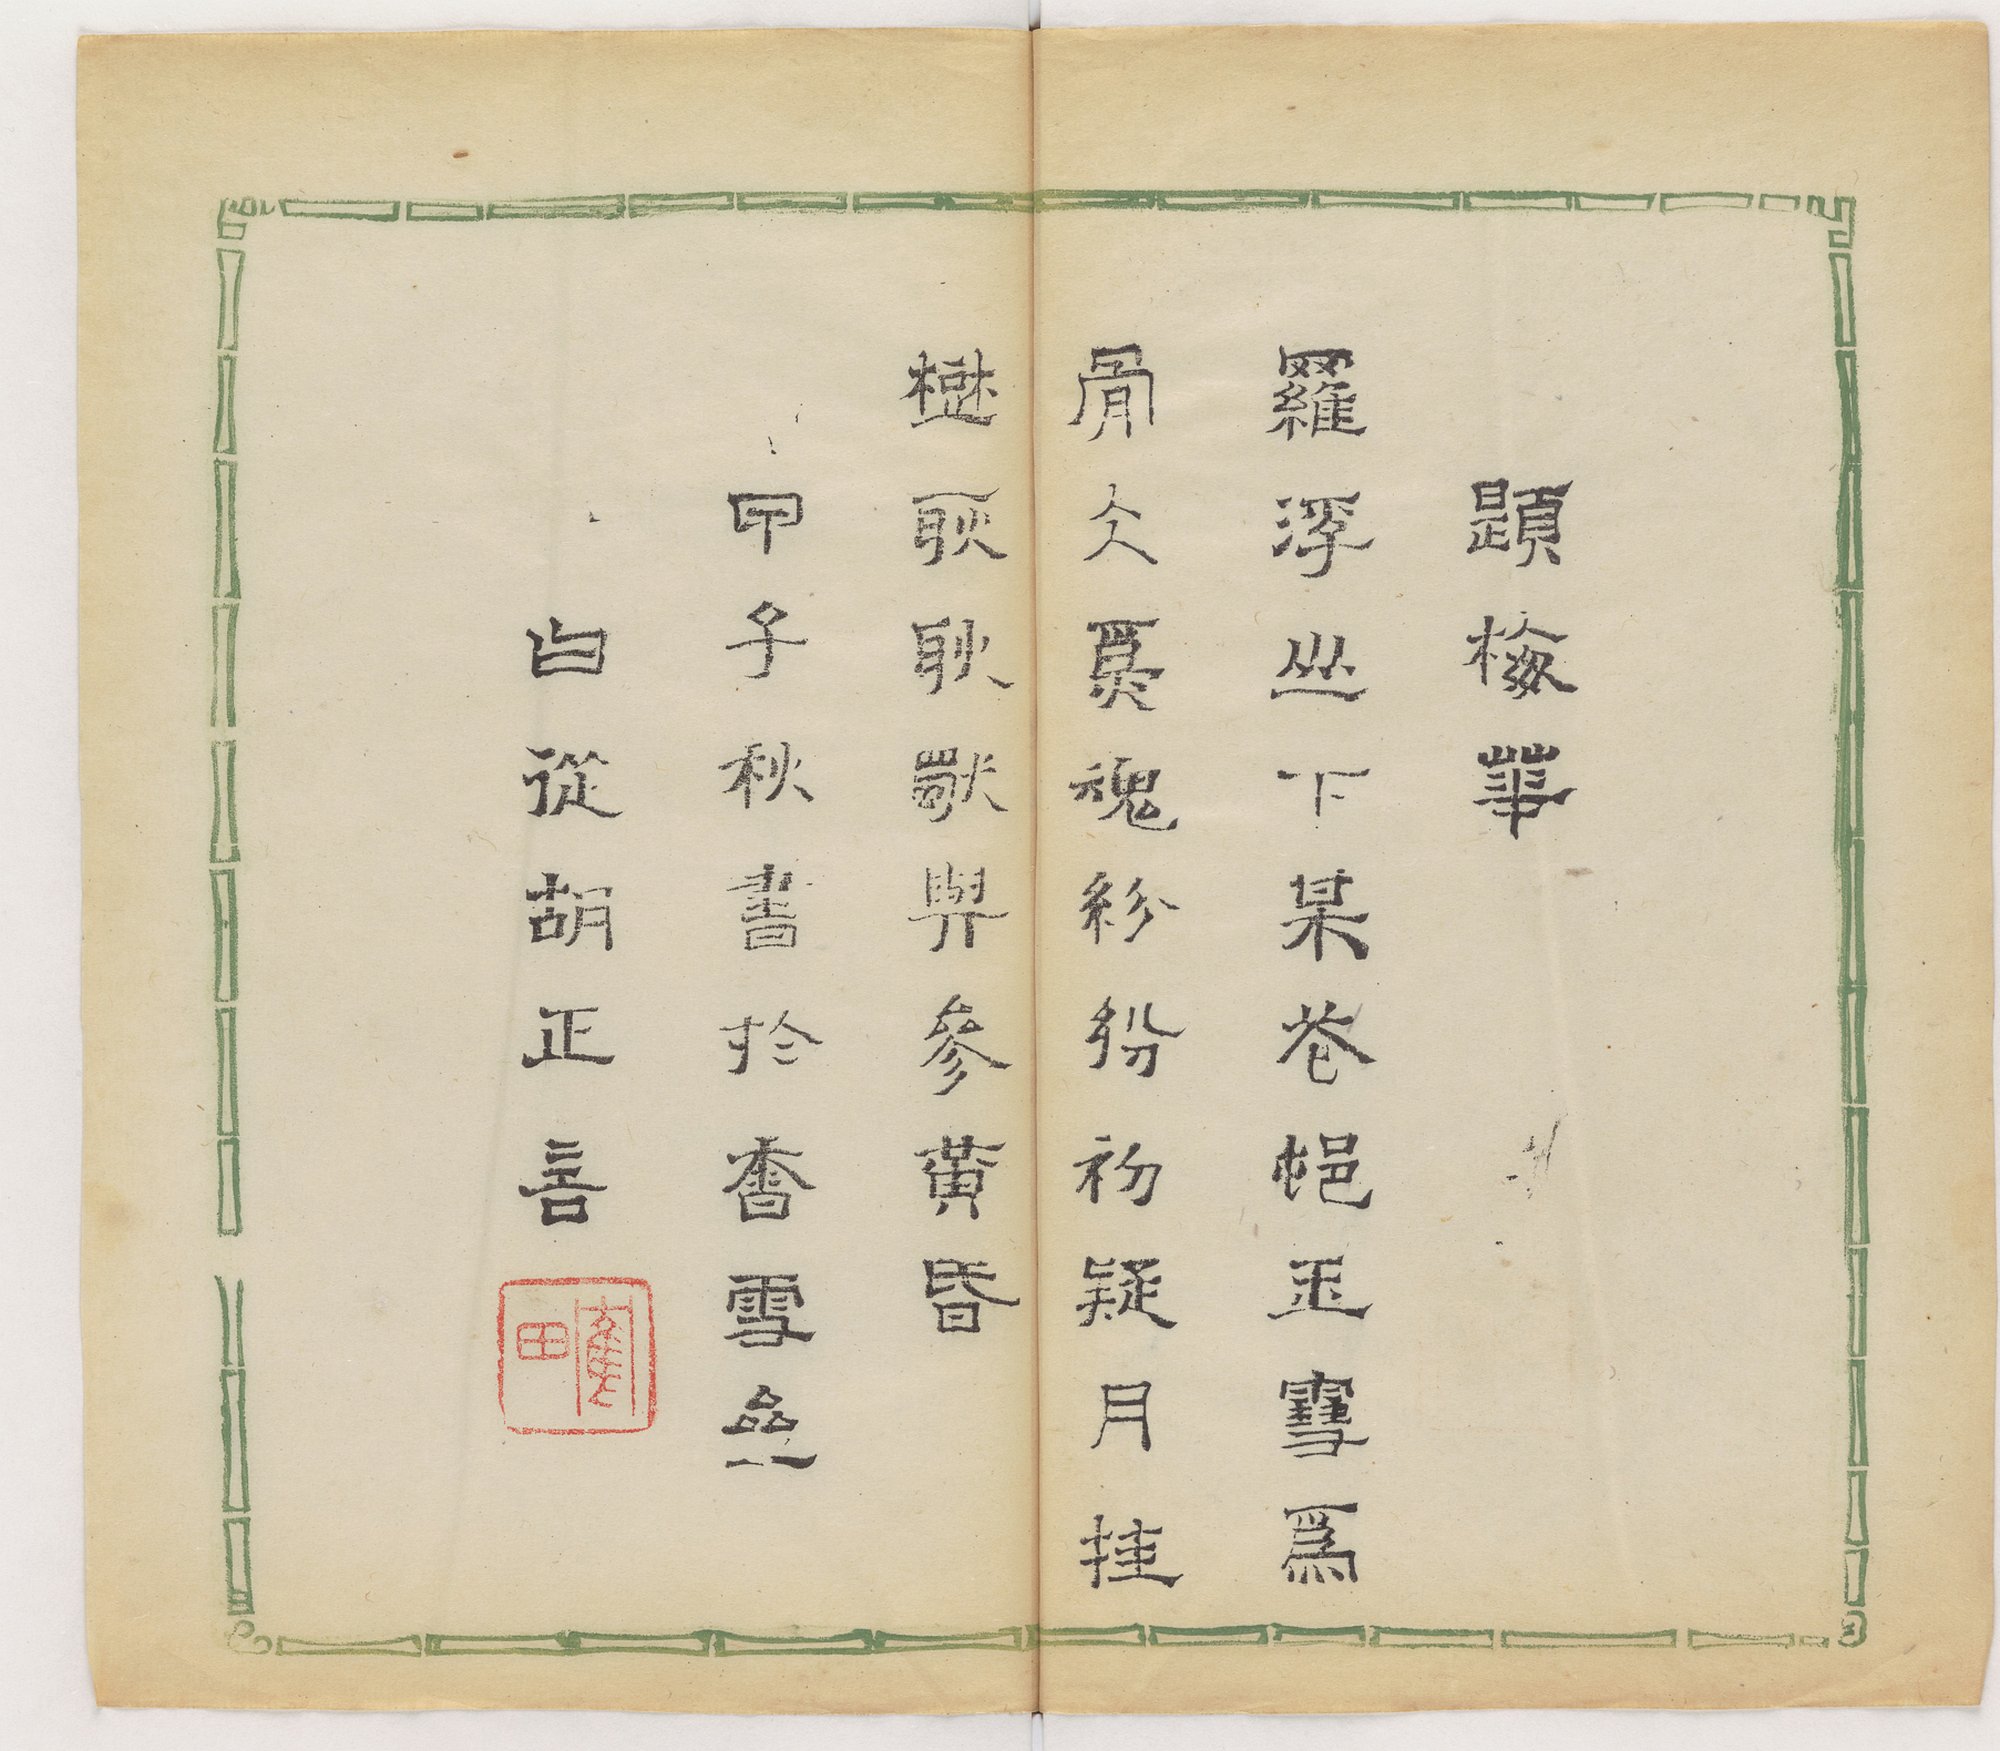 題梅華
羅浮山下某花邨玉雪爲
骨仌爲魂紛紛初疑月挂
樹耿耿獨與參黃昏
甲子秋書於香雪
曰從胡正言